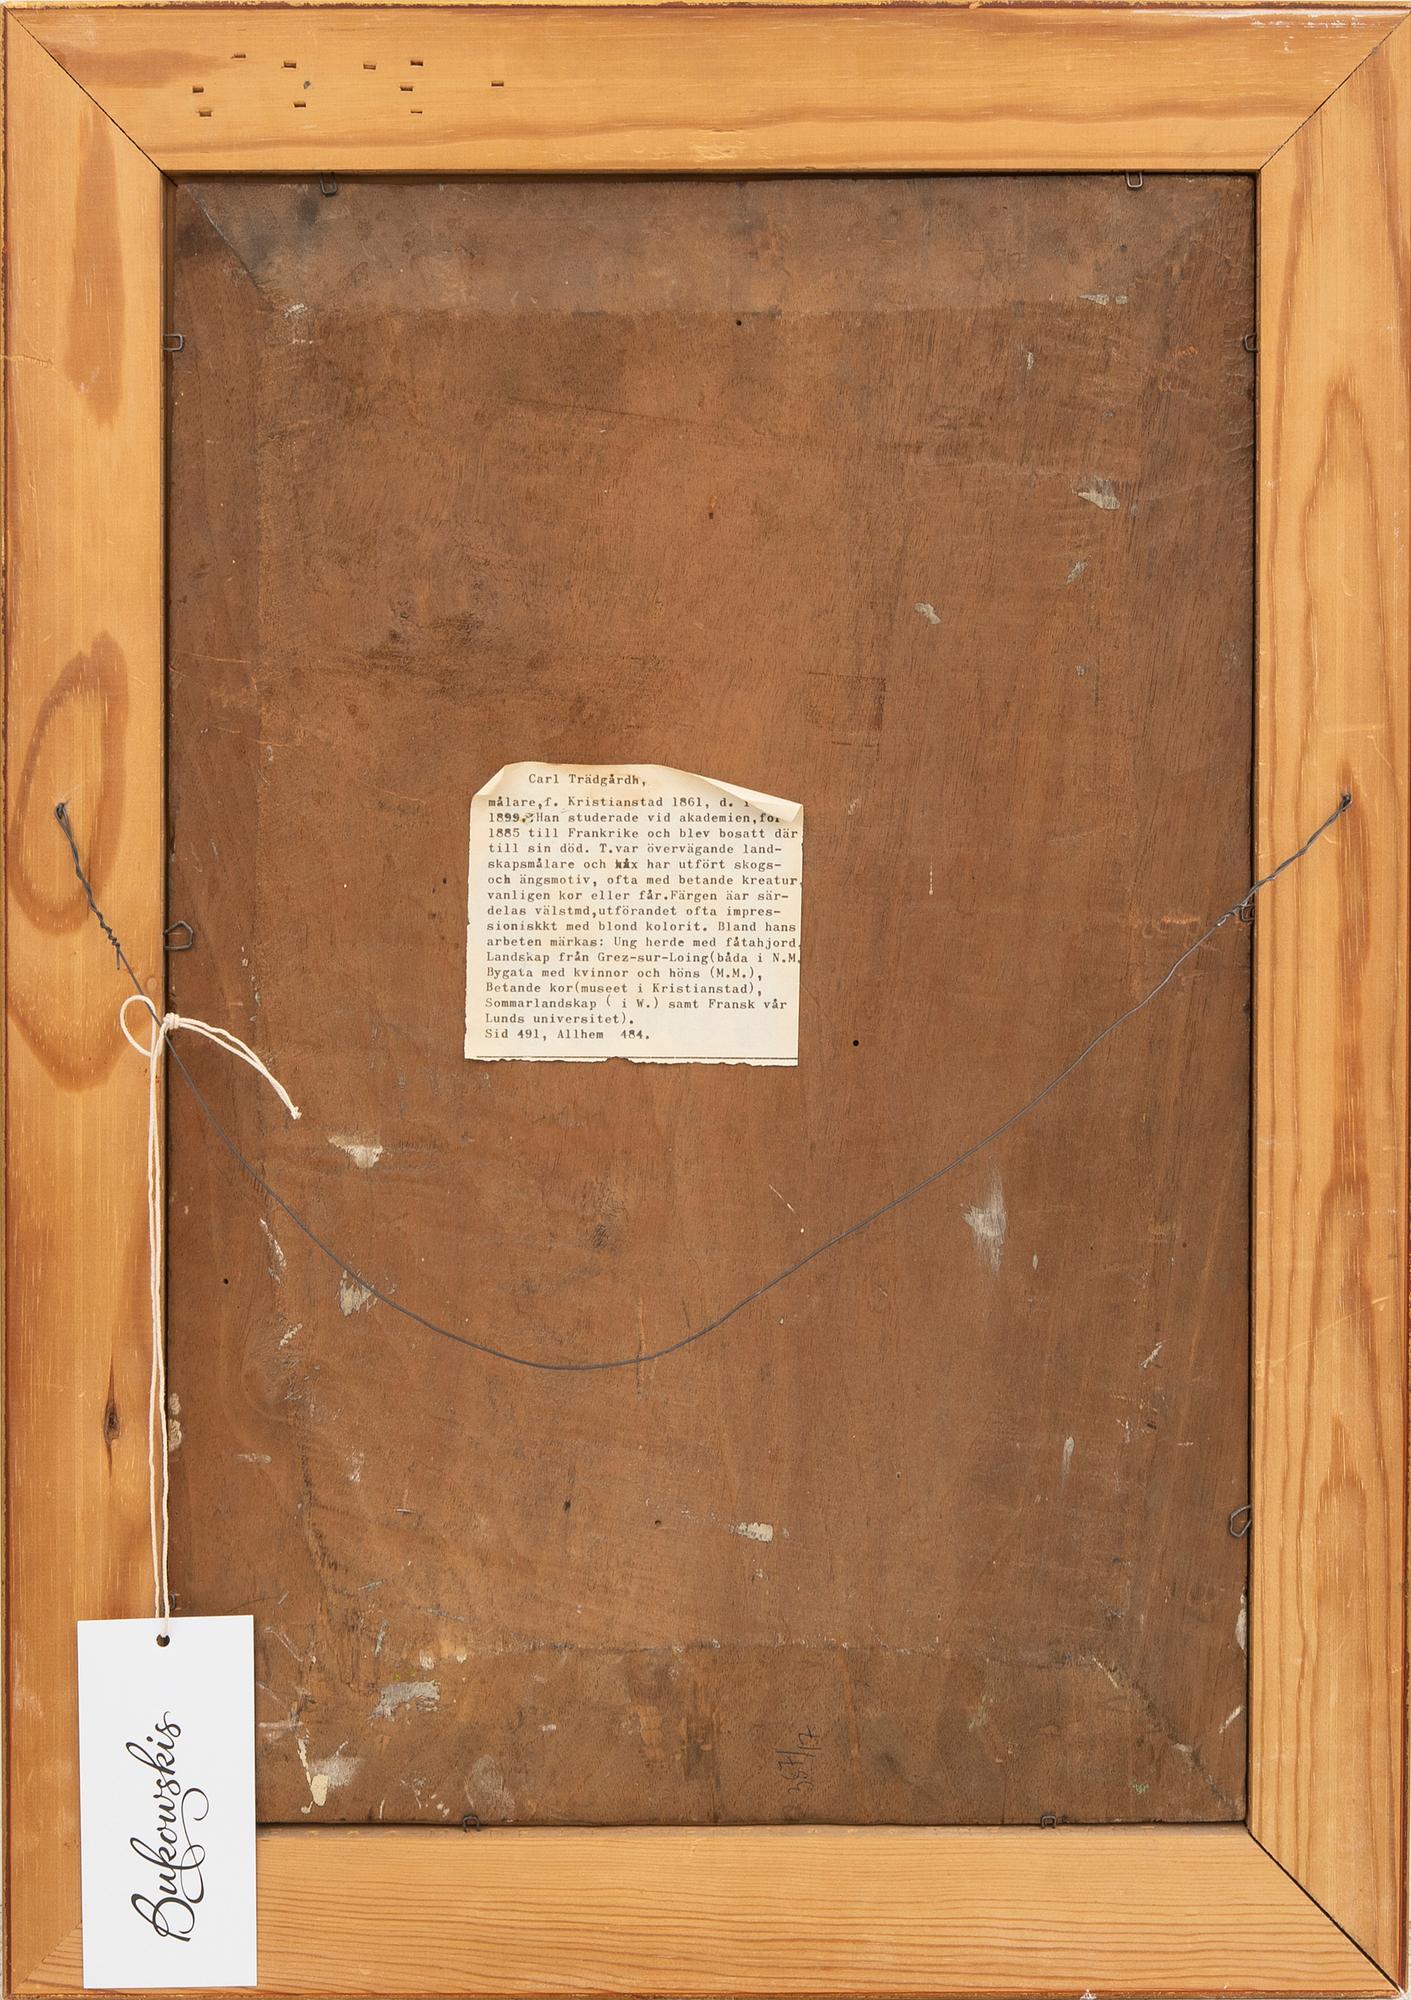 Carl Trädgårdh,
målare,f. Kristianstad 1861, d. i
1899. Han studerade vid akademien,for
1885 till Frankrike och blev bosatt där
till sin död. T.var övervägande land-
skapsmålare och har utfört skogs-
och ängsmotiv, ofta med betande kreatur,
vanligen kor eller får.Färgen äar sär-
delas välstmd,utförandet ofta impres-
sioniskkt med blond kolorit. Bland hans
arbeten märkas: Ung herde med fåtahjord,
Landskap från Grez-sur-Loing(båda i N.M.
Bygata med kvinnor och höns (M.M.),
Betande kor(museet i Kristianstad),
Sommarlandskap ( i W.) samt Fransk vår
Lunds universitet).
Sid 491, Allhem 484.
Bukowskis